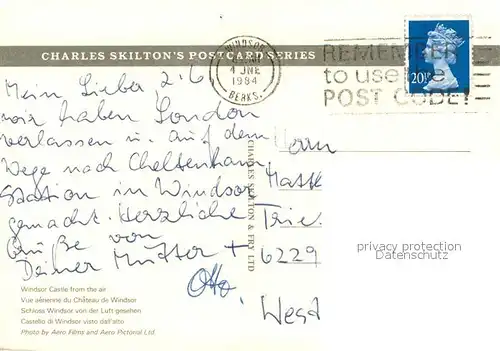 CHARLES SKILTON'S POSTCARD SERIES
WINDSOR
4 JNE
1984
BERKS.
REMEMBER
to use the
POST CODE!
20½P
Mein Lieber 2.6.
wir haben London
verlassen u. auf dem
Wege nach Cheltenham
Station in Windsor
gemacht. Herzliche
Grüße von
Deiner Mutter +
Otto.
CHARLES SKILTON & FRY LTD
Herrn
6229
West
privacy protection
Datenschutz
Windsor Castle from the air
Vue aérienne du Château de Windsor
Schloss Windsor von der Luft gesehen
Castello di Windsor visto dall'alto
Photo by Aero Films and Aero Pictorial Ltd.